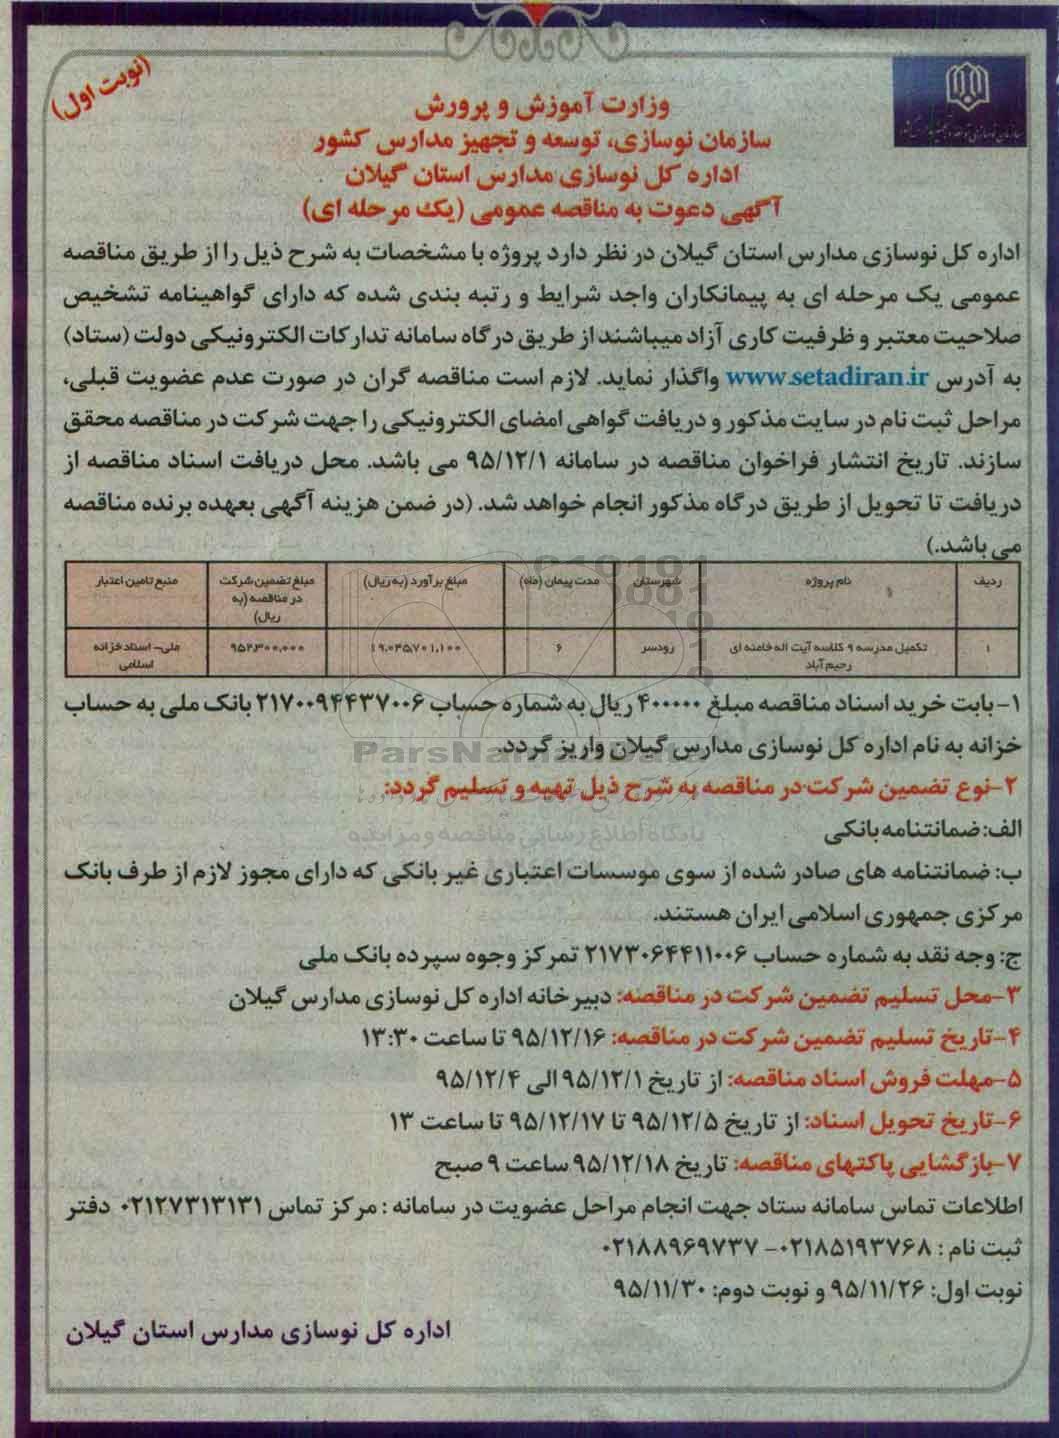 (نوبت اول)
وزارت آموزش و پرورش
سازمان نوسازی، توسعه و تجهیز مدارس کشور
اداره کل نوسازی مدارس استان گیلان
آگهی دعوت به مناقصه عمومی (یک مرحله ای)
اداره کل نوسازی مدارس استان گیلان در نظر دارد پروژه با مشخصات به شرح ذیل را از طریق مناقصه
عمومی یک مرحله ای به پیمانکاران واجد شرایط و رتبه بندی شده که دارای گواهینامه تشخیص
صلاحیت معتبر و ظرفیت کاری آزاد میباشند از طریق درگاه سامانه تدارکات الکترونیکی دولت (ستاد)
به آدرس www.setadiran.ir واگذار نماید. لازم است مناقصه گران در صورت عدم عضویت قبلی،
مراحل ثبت نام در سایت مذکور و دریافت گواهی امضای الکترونیکی را جهت شرکت در مناقصه محقق
سازند. تاریخ انتشار فراخوان مناقصه در سامانه ۹۵/۱۲/۱ می باشد. محل دریافت اسناد مناقصه از
دریافت تا تحویل از طریق درگاه مذکور انجام خواهد شد. (در ضمن هزینه آگهی بعهده برنده مناقصه
می باشد.)
ردیف نام پروژه شهرستان مدت پیمان (ماه) مبلغ برآورد (به ریال) مبلغ تضمین شرکت در مناقصه (به ریال) منبع تامین اعتبار
۱ تکمیل مدرسه ۹ کلاسه آیت اله خامنه ای رحیم آباد رودسر ۶ ۱۹،۰۴۵،۷۰۱،۱۰۰ ۹۵۲،۳۰۰،۰۰۰ ملی- اسناد خزانه اسلامی
۱- بابت خرید اسناد مناقصه مبلغ ۴۰۰۰۰۰ ریال به شماره حساب ۲۱۷۰۰۹۴۴۳۷۰۰۶ بانک ملی به حساب
خزانه به نام اداره کل نوسازی مدارس گیلان واریز گردد.
۲-نوع تضمین شرکت در مناقصه به شرح ذیل تهیه و تسلیم گردد:
الف: ضمانتنامه بانکی
ب: ضمانتنامه های صادر شده از سوی موسسات اعتباری غیر بانکی که دارای مجوز لازم از طرف بانک
مرکزی جمهوری اسلامی ایران هستند.
ج: وجه نقد به شماره حساب ۲۱۷۳۰۶۴۴۱۱۰۰۶ تمرکز وجوه سپرده بانک ملی
۳-محل تسلیم تضمین شرکت در مناقصه: دبیرخانه اداره کل نوسازی مدارس گیلان
۴-تاریخ تسلیم تضمین شرکت در مناقصه: ۹۵/۱۲/۱۶ تا ساعت ۱۳:۳۰
۵-مهلت فروش اسناد مناقصه: از تاریخ ۹۵/۱۲/۱ الی ۹۵/۱۲/۴
۶-تاریخ تحویل اسناد: از تاریخ ۹۵/۱۲/۵ تا ۹۵/۱۲/۱۷ تا ساعت ۱۳
۷-بازگشایی پاکتهای مناقصه: تاریخ ۹۵/۱۲/۱۸ ساعت ۹ صبح
اطلاعات تماس سامانه ستاد جهت انجام مراحل عضویت در سامانه : مرکز تماس ۰۲۱۲۷۳۱۳۱۳۱ دفتر
ثبت نام : ۰۲۱۸۵۱۹۳۷۶۸- ۰۲۱۸۸۹۶۹۷۳۷
نوبت اول: ۹۵/۱۱/۲۶ و نوبت دوم: ۹۵/۱۱/۳۰
اداره کل نوسازی مدارس استان گیلان